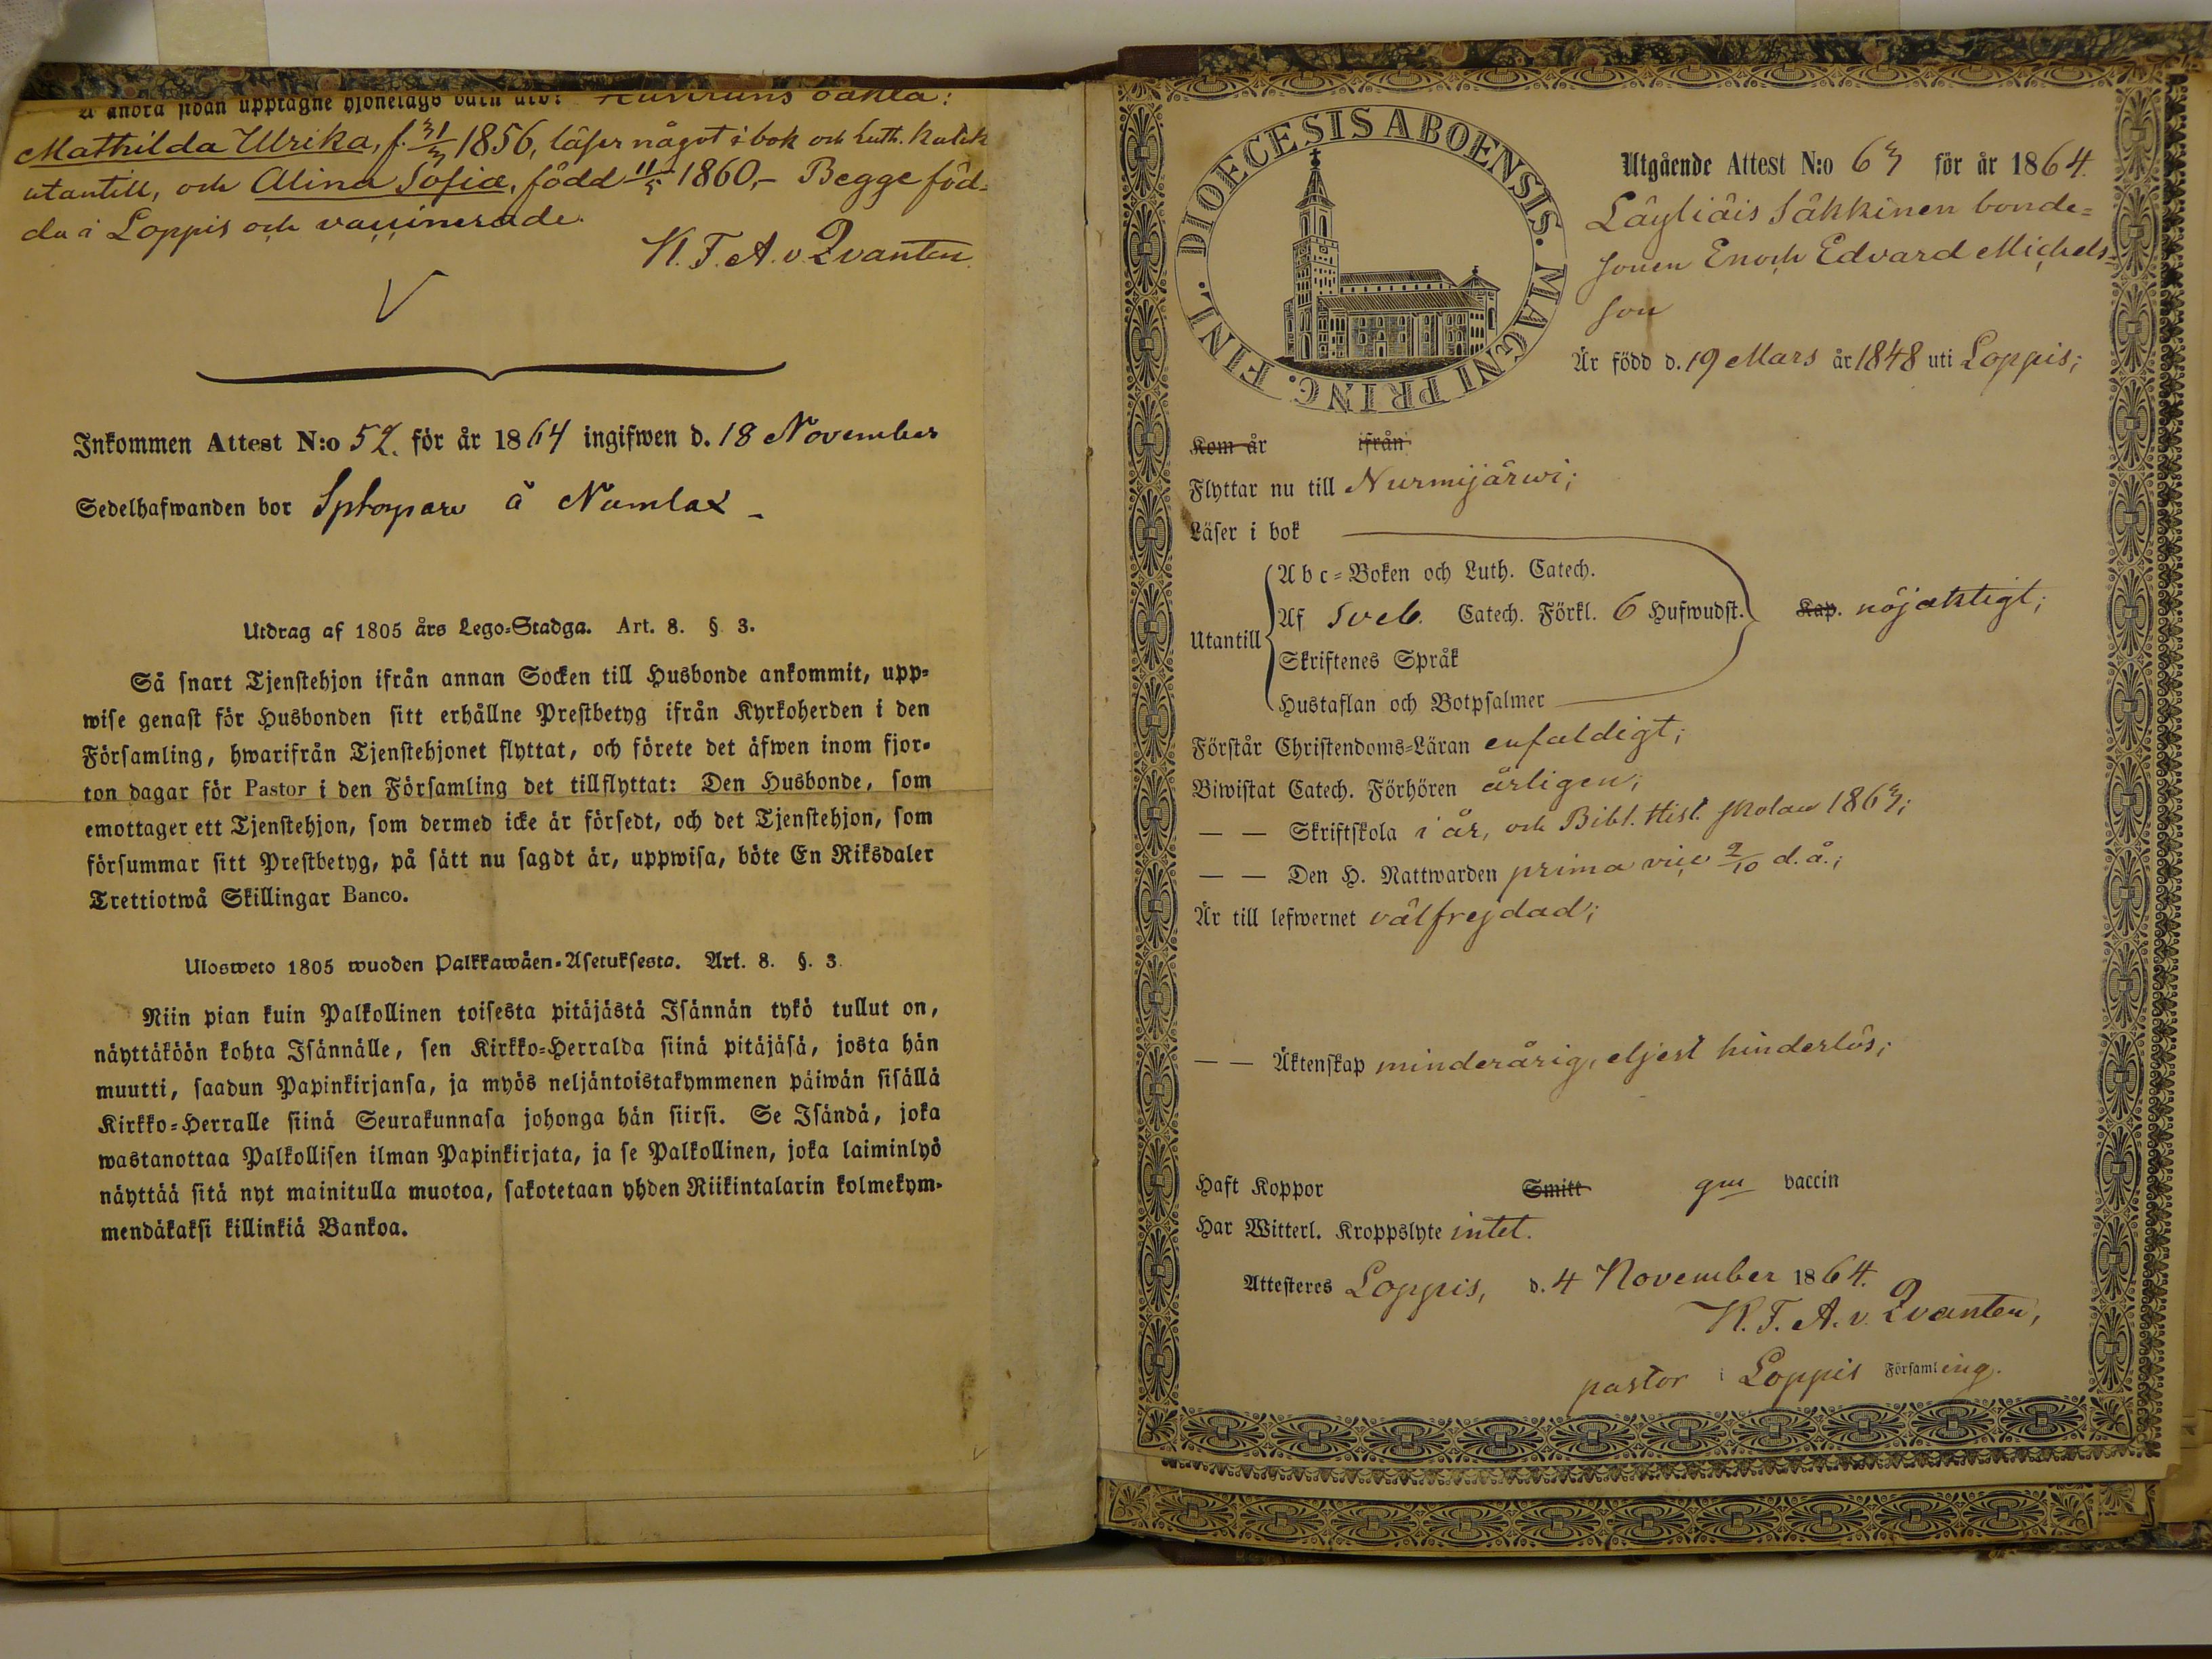 å andra sidan upptagne hjonelags barn äro:
Mathilda Ulrika, f. 31/3 1856, läser något i bok och Luth. Katek
utantill, och Alina Sofia, född 11/5 1860,- Begge föd-
da i Loppis och vaccinerade.
K. F. A. v. Qvanten.
Inkommen Attest N:o 52. för år 1864 ingifwen d. 18 November
Sedelhafwanden bor å Numlax -
Utdrag af 1805 års Lego-Stadga. Art. 8. § 3.
Så snart Tjenstehjon ifrån annan Socken till Husbonde ankommit, upp-
wise genast för Husbonden sitt erhållne Prestbetyg ifrån Kyrkoherden i den
Församling, hwarifrån Tjenstehjonet flyttat, och förete det äfwen inom fjor-
ton dagar för Pastor i den Församling det tillflyttat: Den Husbonde, som
emottager ett Tjenstehjon, som dermed icke är försedt, och det Tjenstehjon, som
försummar sitt Prestbetyg, på sätt nu sagdt är, uppwisa, böte En Riksdaler
Trettiotwå Skillingar Banco.
Ulosweto 1805 wuoden Palkkawäen-Asetuksesta. Art. 8. §. 3.
Niin pian kuin Palkollinen toisesta pitäjästä Isännän tykö tullut on,
näyttäköön kohta Isännälle, sen Kirkko-Herralda siinä pitäjäsä, josta hän
muutti, saadun Papinkirjansa, ja myös neljäntoistakymmenen päiwän sisällä
Kirkko-Herralle siinä Seurakunnasa johonga hän siirsi. Se Isändä, joka
wastanottaa Palkollisen ilman Papinkirjata, ja se Palkollinen, joka laiminlyö
näyttää sitä nyt mainitulla muotoa, sakotetaan yhden Riikintalarin kolmekym-
mendäkaksi killinkiä Bankoa.
DIOECESIS ABOENSIS. MAGNI PRINC. FINL.
Utgående Attest N:o 63 för år 1864.
Läyliäis Säkkinen bonde-
sonen Enoch Edvard Michels-
son
Är född d. 19 Mars år 1848 uti Loppis;
Kom år ifrån
Flyttar nu till Nurmijärwi;
Läser i bok
Utantill
Abc-Boken och Luth. Catech.
Af Sveb. Catech. Förkl. 6 Hufwudst. Kap. nöjaktigt;
Skriftenes Språk
Hustaflan och Botpsalmer
Förstår Christendoms-Läran enfaldigt;
Biwistat Catech. Förhören årligen;
— — Skriftskola i år, och Bibl. Hist. skolan 1863;
— — Den H. Nattwarden prima vice 2/10 d. å.;
Är till lefwernet välfrejdad;
— — Äktenskap minderårig, eljest hinderlös;
Haft Koppor Smitt gm vaccin
Har Witterl. Kroppslyte intet.
Attesteres Loppis, d. 4 November 1864.
K. F. A. v. Qvanten,
pastor i Loppis Församling.